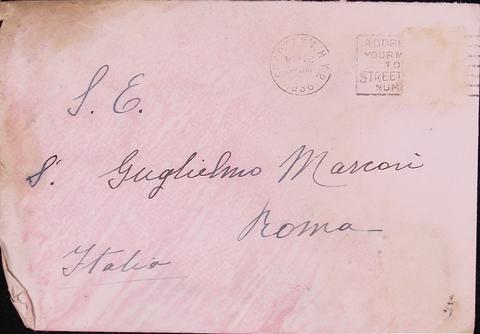 N.Y. 2
1936
ADDRE
YOUR M
TO
STREET
NUM
S. E.
S. Guglielmo Marconi
Roma
Italia